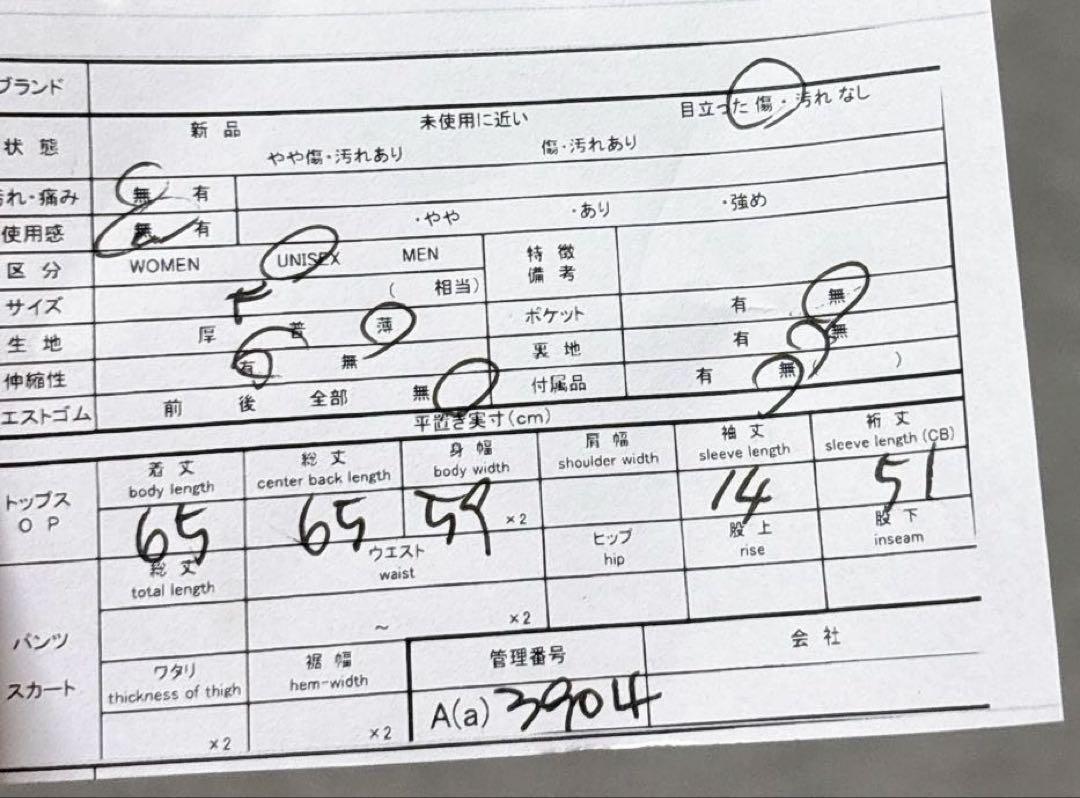 ブランド
状 態 新 品 未使用に近い 目立った 傷・汚れ なし
やや傷・汚れあり 傷・汚れあり
汚れ・痛み 無 有
使用感 無 有 ・やや ・あり ・強め
区 分 WOMEN UNISEX MEN 特 徴
備 考
サイズ ( 相当)
生 地 厚 普 薄 ポケット 有 無
伸縮性 有 無 裏 地 有 無
エストゴム 前 後 全部 無 付属品 有 無 ( )
平置き実寸(cm)
着 丈 総 丈 身 幅 肩 幅 袖 丈 裄 丈
body length center back length body width shoulder width sleeve length sleeve length (CB)
トップス
O P
65 65 59 ×2 14 51
総 丈 ウエスト ヒップ 股 上 股 下
total length waist hip rise inseam
パンツ ~ ×2
スカート
ワタリ 裾 幅 管理番号 会 社
thickness of thigh hem-width
×2 ×2 A(a) 3904